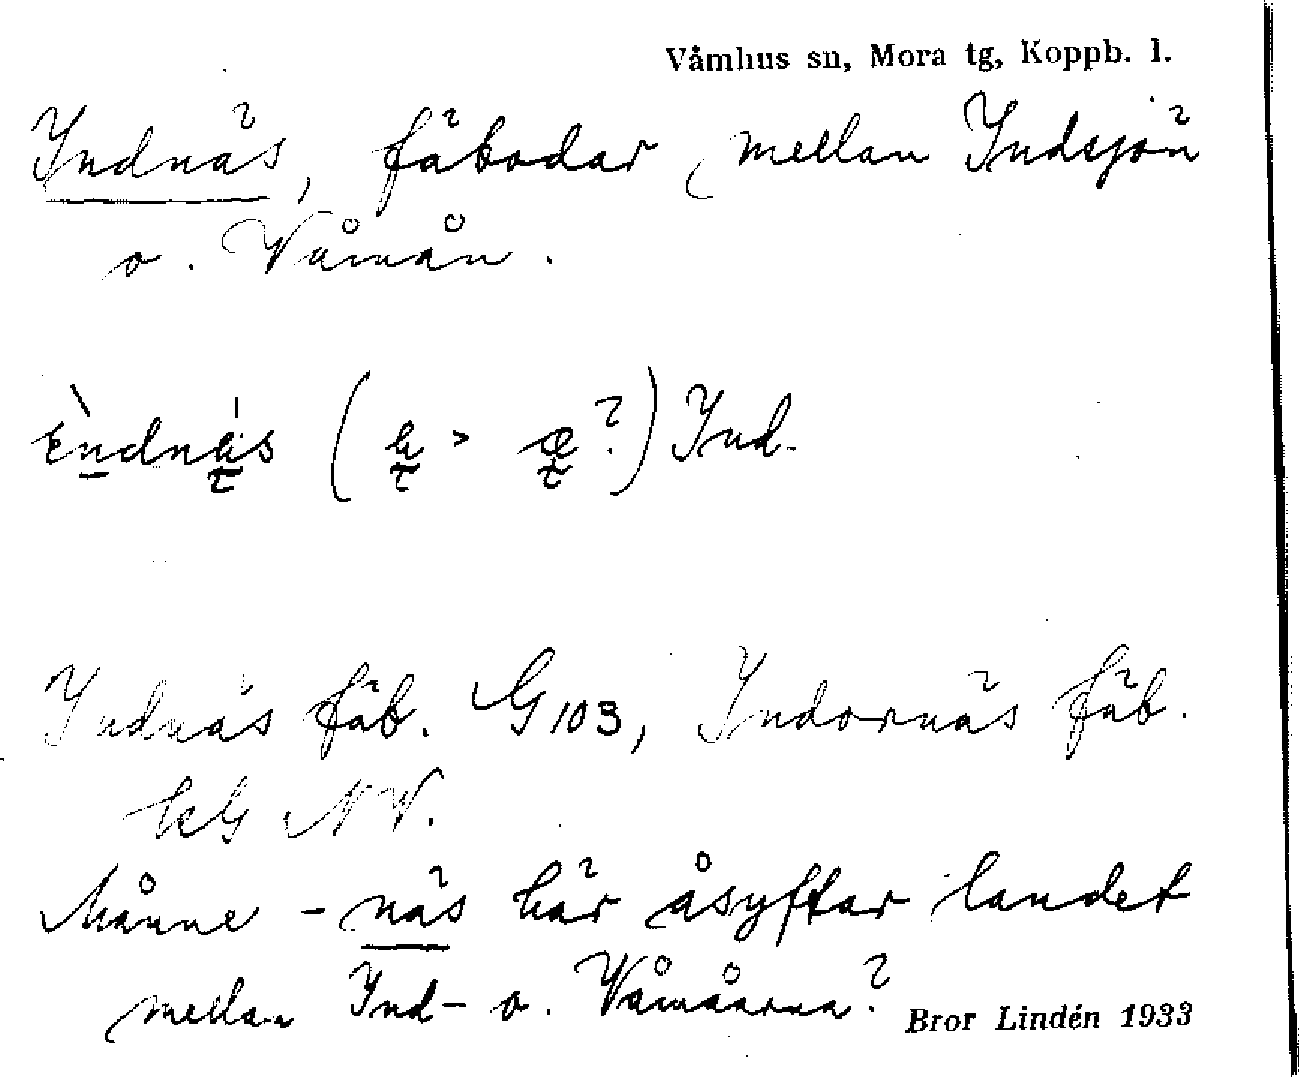 Våmhus sn, Mora tg, Koppb. l.
Indnäs, fäbodar, mellan Indsjön
o. Våmån.
Ind.
Indnäs fäb. G 103, Indornäs fäb.
NV.
Månne -näs här åsyftar landet
mellan Ind- o. Våmåarna?
Bror Lindén 1933